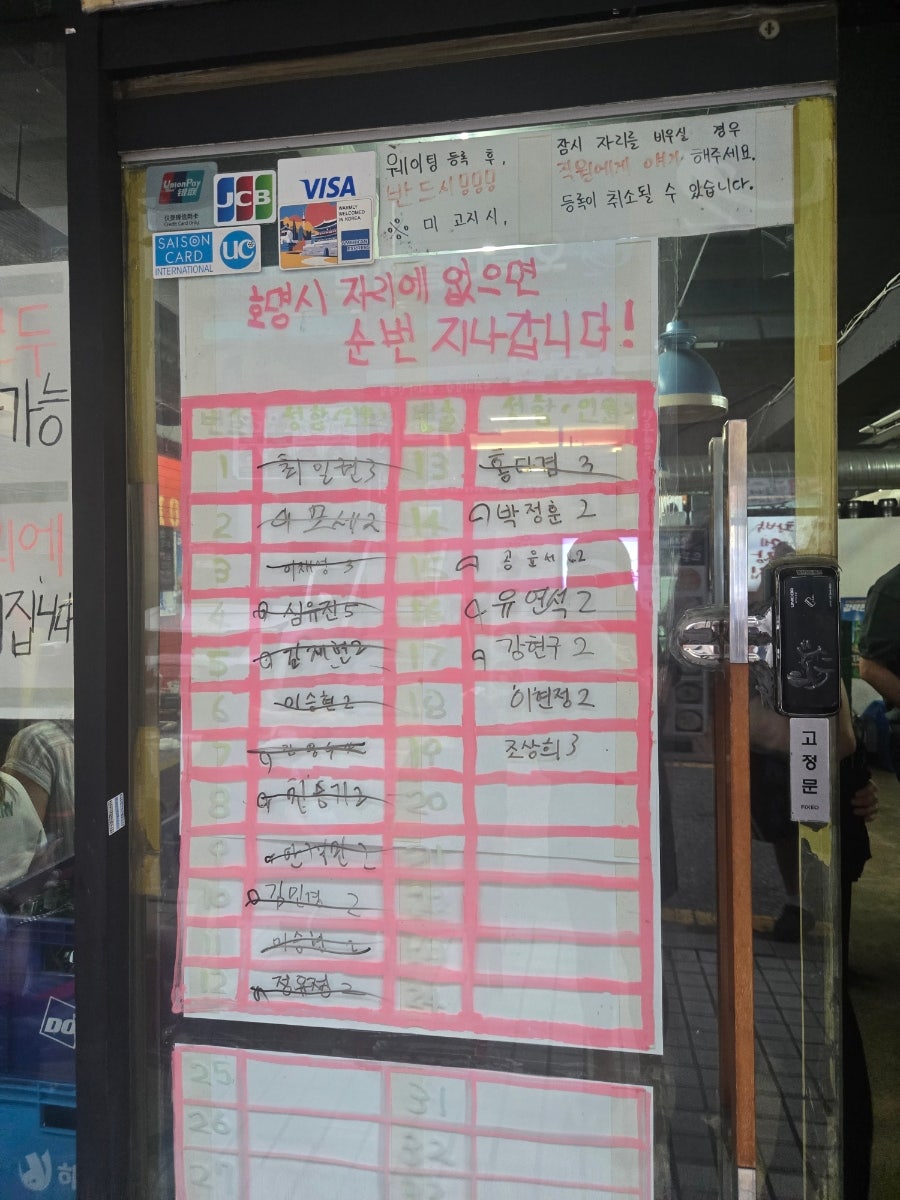 UnionPay
银联
汉喜银信用卡
Credit Card Only
JCB
VISA
WARMLY
WELCOMED
IN KOREA
AMERICAN
EXPRESS
SAISON
CARD
INTERNATIONAL
UC
웨이팅 등록 후,
반드시!!!
※ 미 고지시,
잠시 자리를 비우실 경우
직원에게 얘기 해주세요.
등록이 취소될 수 있습니다.
호명시 자리에 없으면
순번 지나갑니다!
번호 성함<인원> 번호 성함<인원>
1 최일현 3 13
2 모세 2 14 박정훈 2
3 이재성 3 15 공윤서 2
4 심유진 5 16 유연석 2
5 김세현 2 17 강현구 2
6 이승현 2 18 이현정 2
7 19 조상희 3
8 2 20
9 2 21
10 김민경 2 22
11 이승현 2 23
12 정유정 2 24
25 31
26 32
27
두
가능
에
집니다
고정문
FIXED
DO
하